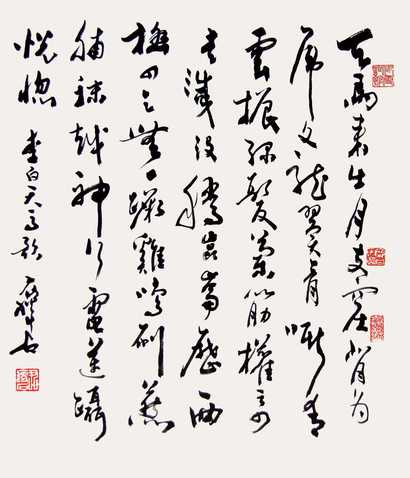 天馬来出月支窟背为
虎文龍翼骨嘶青
雲振绿髮蘭筋權奇
走滅没騰崑崙歷西
極四足無一蹶雞鳴刷燕
晡秣越神行電邁躡
恍惚 李白天馬歌